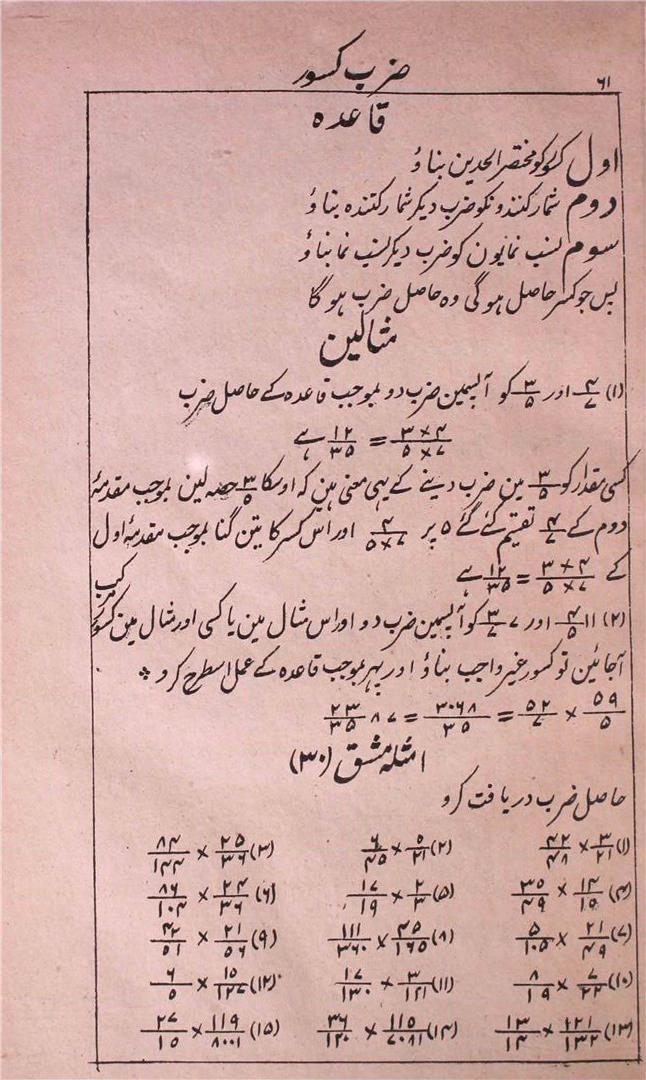 ۶۱
ضرب کسور
قاعدہ
اول کو مختصر الحدین بناؤ
دوم شمار کنندونکو ضرب دیکر شمار کنندہ بناؤ
سوم نسب نمایون کو ضرب دیکر نسب نما بناؤ
پس جو کسر حاصل ہوگی وہ حاصل ضرب ہو گا
مثالین
(۱) ۴/۷ اور ۳/۵ کو آپسمین ضرب دو بموجب قاعدہ کے حاصل ضرب
۳×۴/۵×۷ = ۱۲/۳۵ ہے
کسی مقدار کو ۳/۵ مین ضرب دینے کے یہی معنی ہین کہ اوسکا ۳/۵ حصہ لین بموجب مقدمۂ
دوم کے ۴/۷ تقسیم کئے گئے ۵ پر ۴/۵×۷ اور اس کسر کا تین گنا بموجب مقدمۂ اول
کے ۳×۴/۵×۷ = ۱۲/۳۵ ہے
(۲) ۱۱ ۴/۵ اور ۷ ۳/۷ کو آپسمین ضرب دو اور اس مثال مین یا کسی اور مثال مین کسور مرکب
آجائین تو کسور غیر واجب بناؤ اور پہر بموجب قاعدہ کے عمل اسطرح کرو
۵۹/۵ × ۵۲/۷ = ۳۰۶۸/۳۵ = ۸۷ ۲۳/۳۵
امثلہ مشق (۳۰)
حاصل ضرب دریافت کرو
(۱) ۳/۲۱ × ۴۲/۴۸ (۲) ۵/۲۱ × ۶/۴۵ (۳) ۲۵/۳۶ × ۸۴/۱۴۴
(۴) ۱۴/۱۵ × ۳۵/۴۹ (۵) ۲/۳ × ۱۷/۱۹ (۶) ۲۴/۳۶ × ۸۶/۱۰۴
(۷) ۲۱/۴۹ × ۵/۱۰۵ (۸) ۴۵/۱۶۵ × ۱۱۱/۳۶۰ (۹) ۲۱/۵۶ × ۴۲/۵۱
(۱۰) ۷/۲۲ × ۸/۱۹ (۱۱) ۳/۱۲۱ × ۱۷/۱۳۰ (۱۲) ۱۵/۱۲۷ × ۶/۵
(۱۳) ۲۲۱/۱۳۲ × ۱۳/۱۴ (۱۴) ۱۱۵/۷۰۸۱ × ۳۶/۱۲۰ (۱۵) ۱۱۹/۸۰۰۱ × ۲۷/۱۵